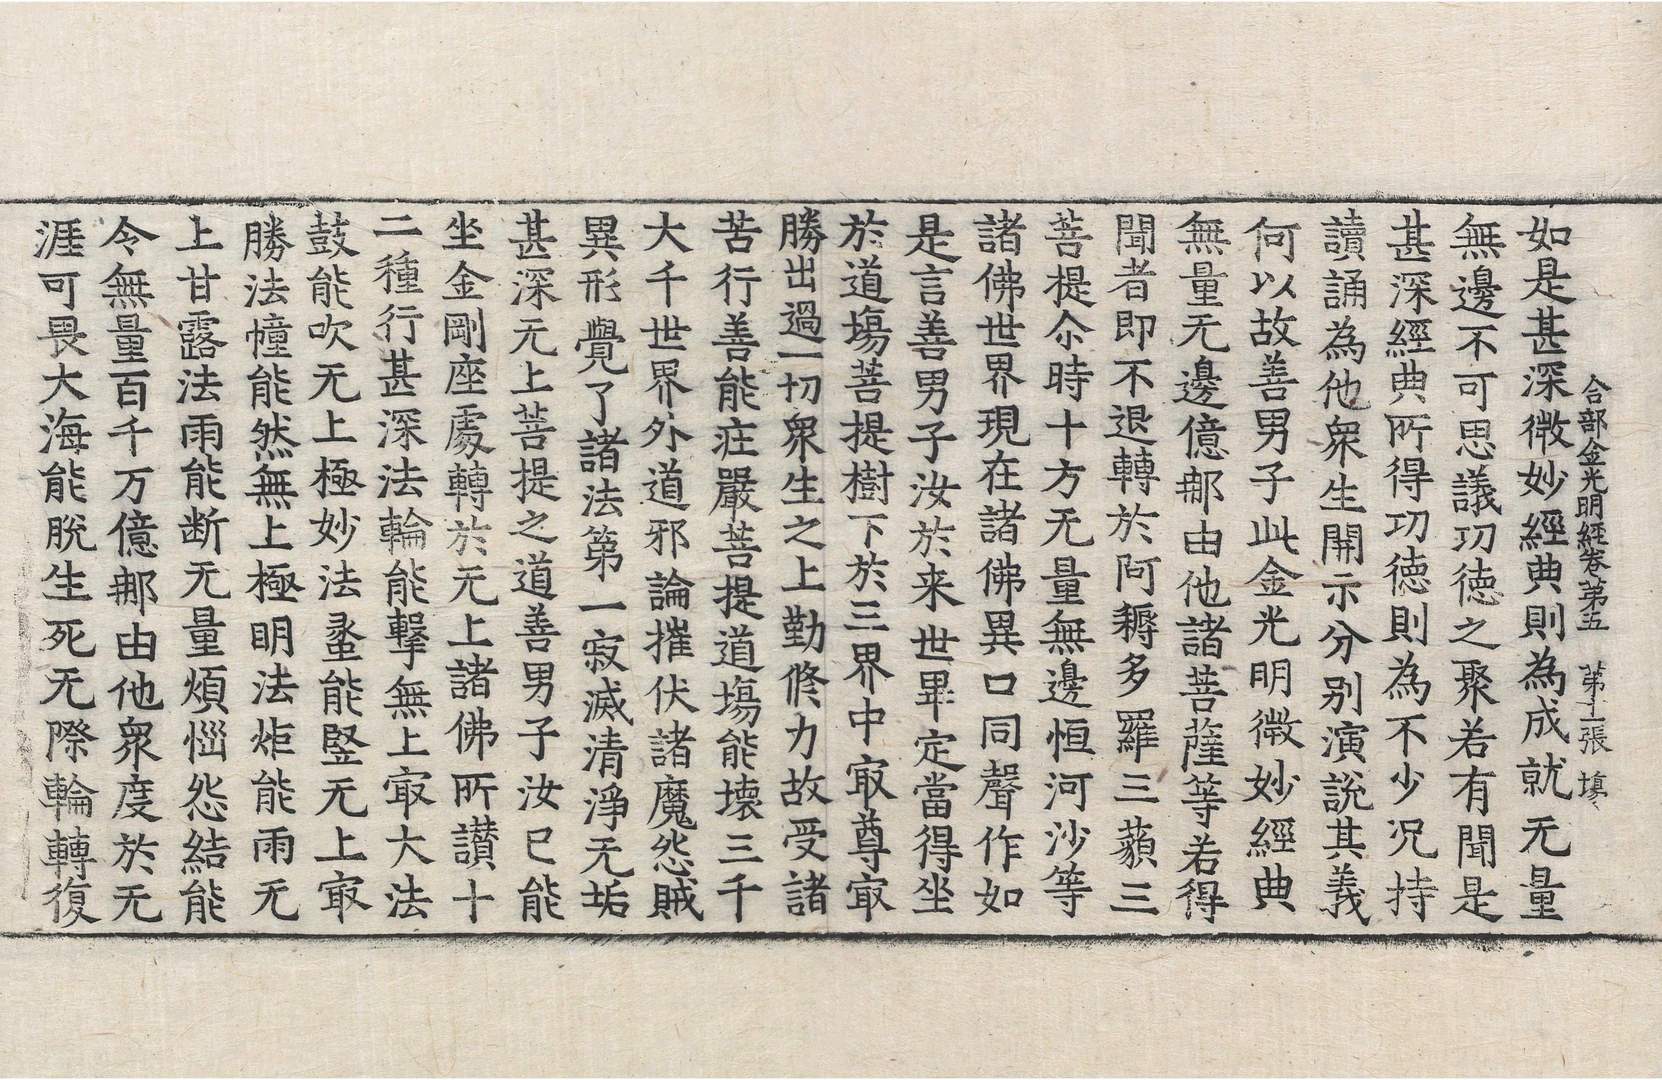 合部金光明經卷第五 第十二張 塡
如是甚深微妙經典則為成就无量
無邊不可思議功德之聚若有聞是
甚深經典所得功德則為不少况持
讀誦為他衆生開示分别演説其義
何以故善男子此金光明微妙經典
無量无邊億那由他諸菩薩等若得
聞者即不退轉於阿耨多羅三藐三
菩提尒時十方无量無邊恒河沙等
諸佛世界現在諸佛異口同聲作如
是言善男子汝於来世畢定當得坐
於道場菩提樹下於三界中㝡尊㝡
勝出過一切衆生之上勤修力故受諸
苦行善能莊嚴菩提道場能壊三千
大千世界外道邪論摧伏諸魔怨賊
異形覺了諸法第一寂滅清淨无垢
甚深无上菩提之道善男子汝已能
坐金剛座處轉於无上諸佛所讃十
二種行甚深法輪能擊無上㝡大法
鼓能吹无上極妙法䗍能竪无上㝡
勝法幢能然無上極明法炬能雨无
上甘露法雨能断无量煩惱怨結能
令無量百千万億那由他衆度於无
涯可畏大海能脱生死无際輪轉復